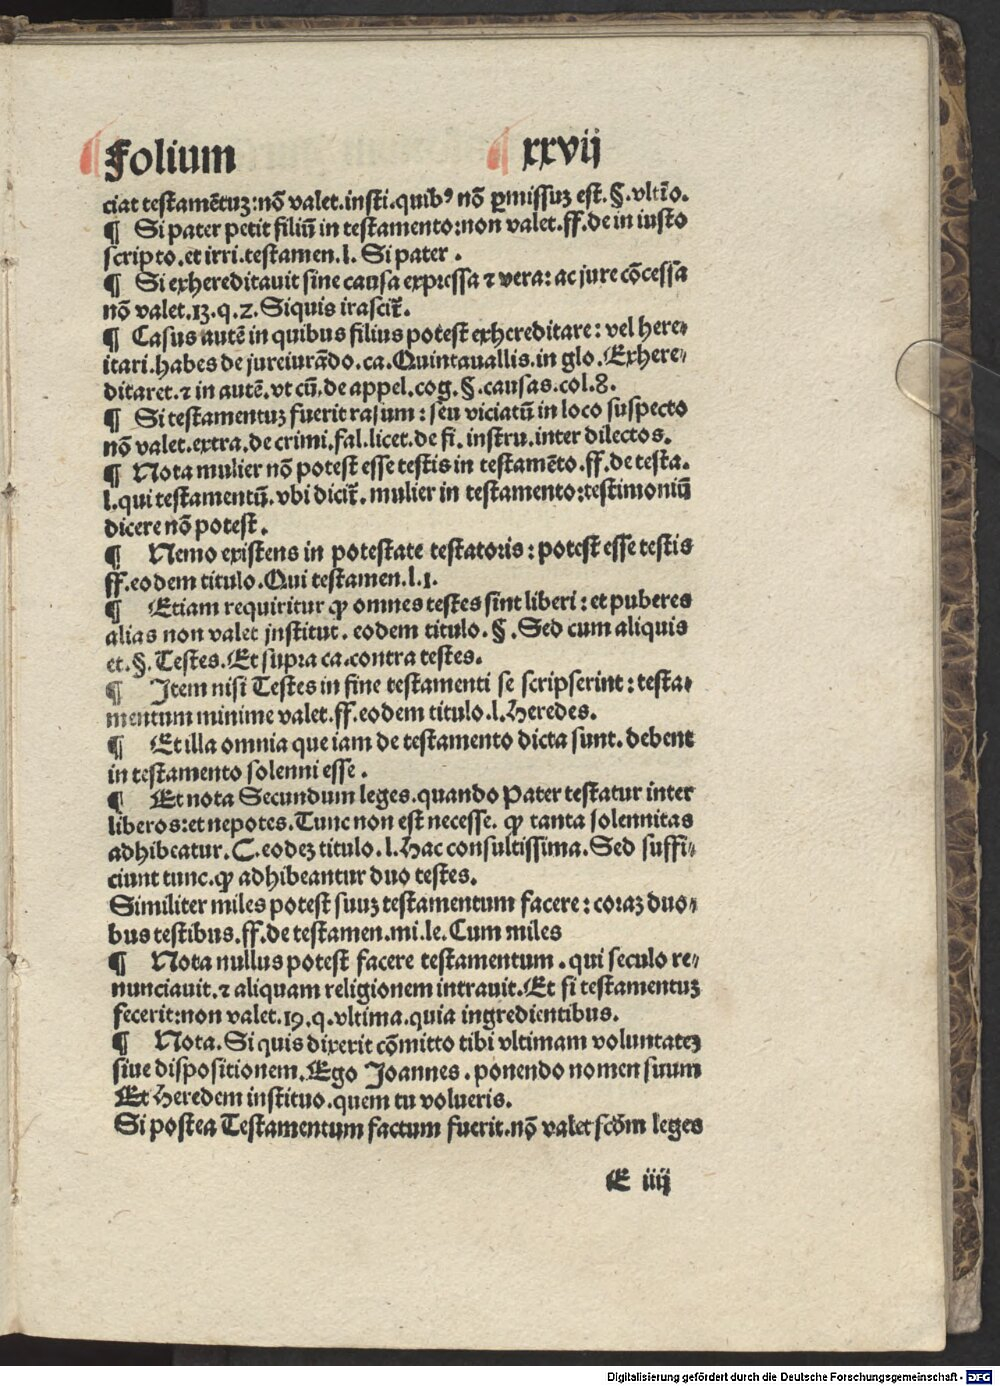 Folium xxvij
ciat testamētuꝫ:nō valet.insti.quibꝰ nō ꝑmissuꝫ est.§.vltīo.
¶ Si pater petit filiū in testamento:non valet.ff.de in iusto
scripto.et irri.testamen.l. Si pater .
¶ Si exhereditauit sine causa expressa ⁊ vera: ac jure cōcessa
nō valet.13.q.2.Siquis irascit̄.
¶ Casus autē in quibus filius potest exhereditare: vel here⸗
itari.habes de jureiurādo.ca.Quintauallis.in glo.Exhere⸗
ditaret.⁊ in autē.vt cū.de appel.cog.§.causas.col.8.
¶ Si testamentuꝫ fuerit rasum: seu viciatū in loco suspecto
nō valet.extra.de crimi.fal.licet.de fi. instru.inter dilectos.
¶ Nota mulier nō potest esse testis in testamēto.ff.de testa.
l.qui testamentū.vbi dicit̄.mulier in testamento:testimoniū
dicere nō potest.
¶ Nemo existens in potestate testatoris: potest esse testis
ff.eodem titulo.Qui testamen.l.1.
¶ Etiam requiritur ꝙ omnes testes sint liberi: et puberes
alias non valet jnstitut. eodem titulo. §. Sed cum aliquis
et.§. Testes. Et supra ca.contra testes.
¶ Item nisi Testes in fine testamenti se scripserint: testa⸗
mentum minime valet.ff.eodem titulo.l.Heredes.
¶ Et illa omnia que iam de testamento dicta sunt. debent
in testamento solenni esse .
¶ Et nota Secundum leges.quando Pater testatur inter
liberos:et nepotes.Tunc non est necesse. ꝙ tanta solennitas
adhibeatur. C.eodeꝫ titulo.l.Hac consultissima.Sed suffi⸗
ciunt tunc.ꝙ adhibeantur duo testes.
Similiter miles potest suuꝫ testamentum facere: coraꝫ duo⸗
bus testibus.ff.de testamen.mi.le.Cum miles
¶ Nota nullus potest facere testamentum. qui seculo re⸗
nunciauit.⁊ aliquam religionem intrauit.Et si testamentuꝫ
fecerit:non valet.19.q.vltima.quia ingredientibus.
¶ Nota. Si quis dixerit cōmitto tibi vltimam voluntateꝫ
siue dispositionem.Ego Joannes. ponendo nomen suum
Et Heredem instituo.quem tu volueris.
Si postea Testamentum factum fuerit.nō valet scd̄m leges
E iiij
Digitalisierung gefördert durch die Deutsche Forschungsgemeinschaft - DFG